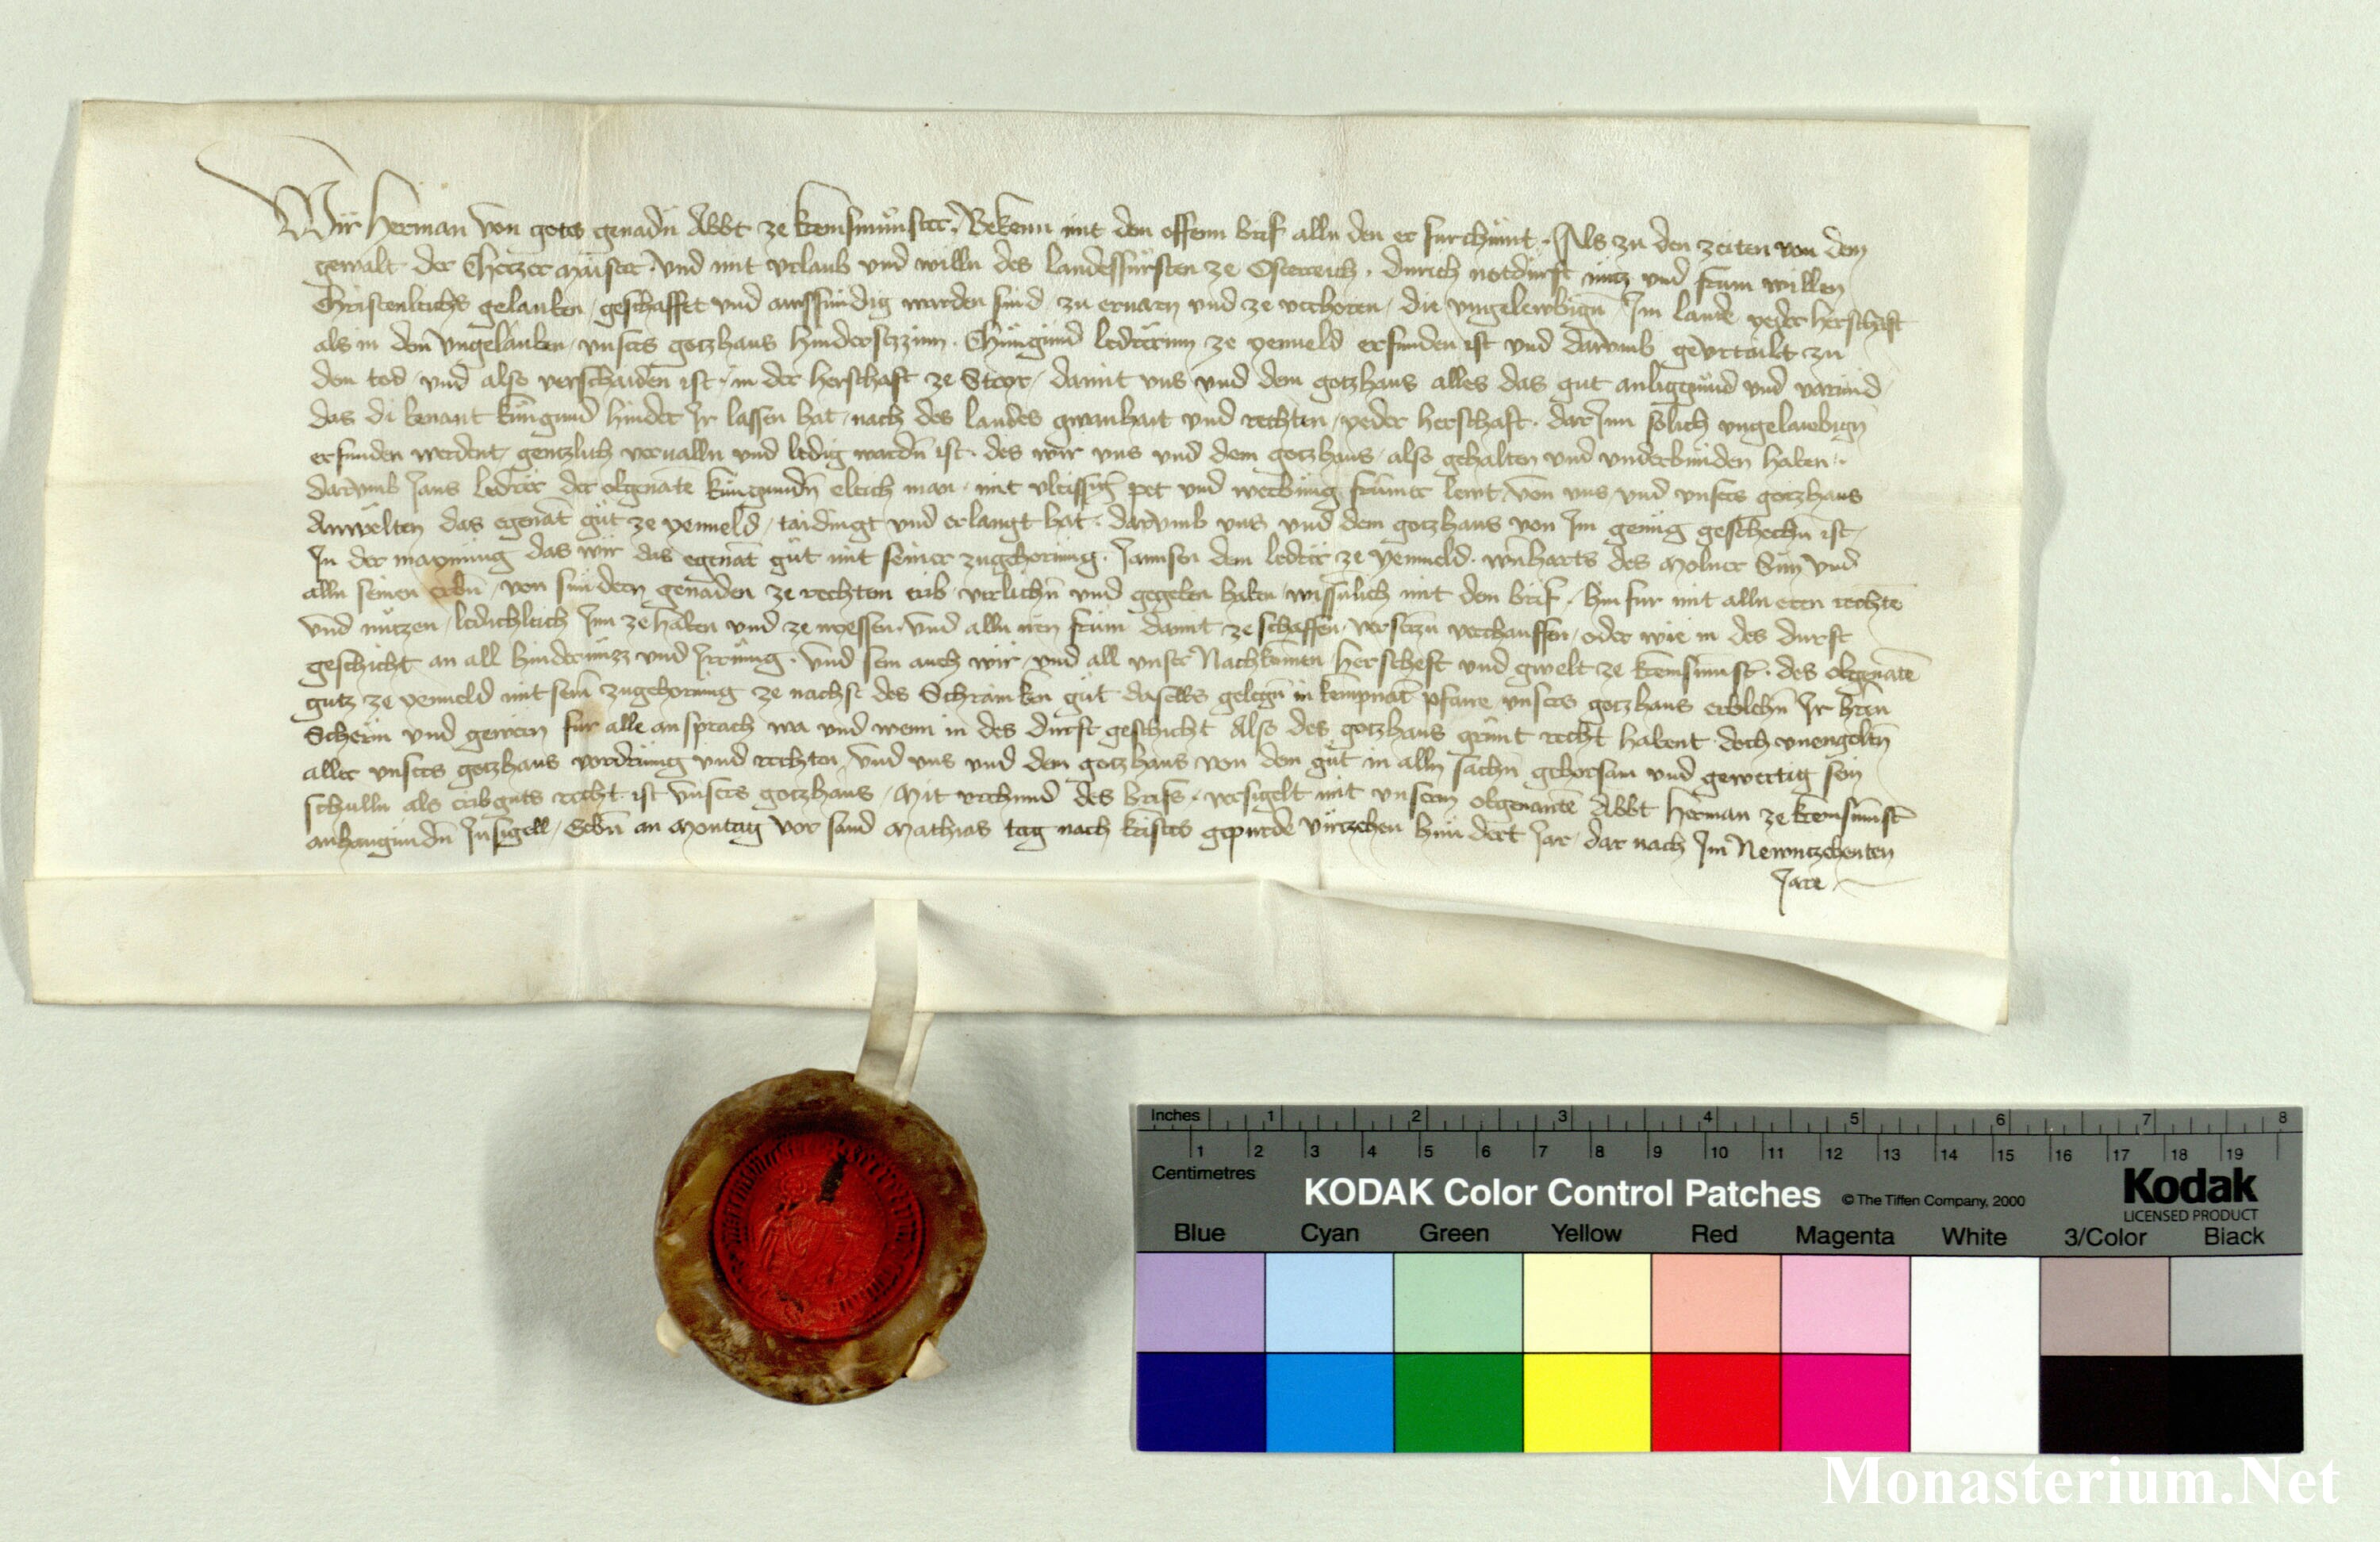 Wir Herman von gots genadn Abbt ze kremsmunster. Bekenn mit dem offenn brif alln den er furchumt. Als zu den zeiten von dem
gewalt der Checzer maister und mit urlaub und willn des landesfursten ze Osterreich. durich notdurft nucz und frum willen
Christenleichs gelauben geschafft und aussfundig warden sind zu ervarn und ze verhoren die ungelewbign Im lande yeder herschaft
als in dem ungelauben unsers gotzhaus hindersezzinn. Chungund ledrerinn ze yenveld erfunden ist und darumb geurtailt zu
dem tod und also verschaiden ist in der herschaft ze Steyr damit uns und dem gotzhaus alles das gut anliggund und varund
das di benant kungund hinder Ir lassen hat nach des landes gwanhait und rechten yeder herschaft. darInn solich ungelawbign
erfunden werdent genczlich vervalln und ledig wardn ist. des wir uns und dem gotzhaus also gehalten und underbunden haben.
darumb Jans ledrer der obgenate kungundn eleich man mit vleissign pet und werbung frumer lewt von uns und unsers gotzhaus
Anwelten das egenat gut ze yenveld taidingt und erlangt hat. darumb uns und dem gotzhaus von Im genug geschechn ist
In der maynung das wir das egenat gut mit seiner zugehorung. Jannsen dem ledrer ze yenveld. des Molner Sun und
alln seinen erbn von sundern genaden ze rechtem erib verlichn und gegeben haben wissnlich mit dem brif. hinfur mit alln eren rechte
und nuczen ledichleich Inn ze haben und ze niessen. und alln iren frum damit ze schaffen verseczn verchauffen oder wie in des durft
geschicht an all hindernuzz und Irrung. und sein auch wir und all unser Nachkomen herscheft und gwelt ze kremsmunst. des obgenate
gutz ze yenveld mit seiner zugehorung ze nachst des Schranken gut daselbs gelegn in kempnat pfarre unsers gotzhaus erblehn Ir hern
Scherm und gewern fur alle ansprach wa und wenn in des durft geschicht Also des gotzhaus recht habent doch unengoltn
aller unsers gotzhaus vordrung und rechten und uns und dem gotzhaus von dem gut in alln sachn gehorsam und gewertig sein
schulln als eribguts recht ist unsers gotzhaus. Mit urchund des brifs. versigelt mit unserm obgenante Abbt Herman ze kremsmunst
anhangundn Insigell. Gebn an Montag vor sand Mathias tag nach kristes gepurde virczehen hundert Jar dar nach Im Newnczehenten
Jare
Inches 1 2 3 4 5 6 7 8
1 2 3 4 5 6 7 8 9 10 11 12 13 14 15 16 17 18 19
Centimetres
KODAK Color Control Patches © The Tiffen Company, 2000 Kodak
LICENSED PRODUCT
Blue Cyan Green Yellow Red Magenta White 3/Color Black
Monasterium.Net